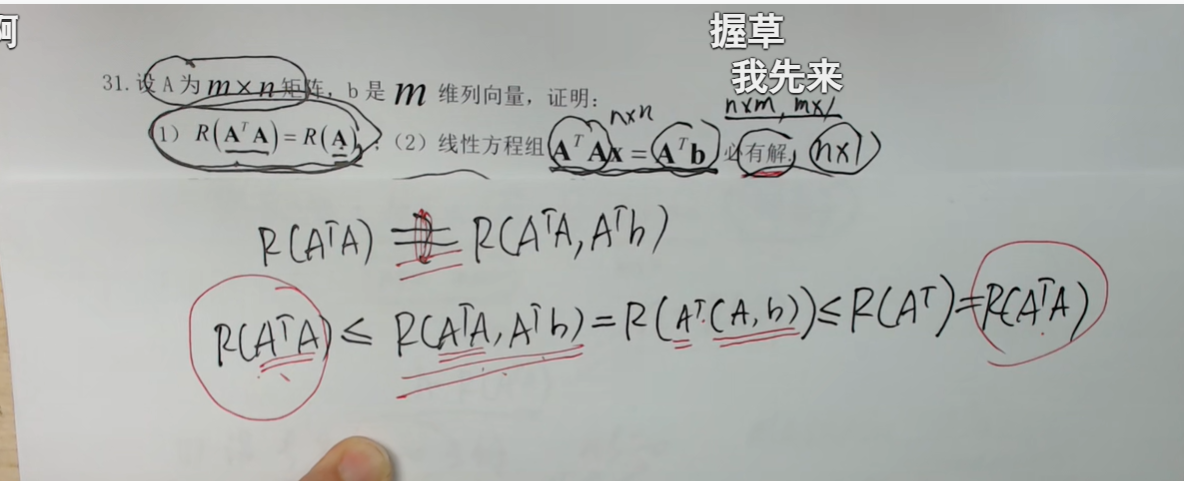 啊
握草
我先来
31. 设 A 为 m × n 矩阵, b 是 m 维列向量, 证明:
n×n
n×m, m×1
(1) R(AᵀA) = R(A); (2) 线性方程组 AᵀAx = Aᵀb 必有解. (n×1)
R(AᵀA) = R(AᵀA, Aᵀb)
R(AᵀA) ≤ R(AᵀA, Aᵀb) = R(Aᵀ(A, b)) ≤ R(Aᵀ) = R(AᵀA)